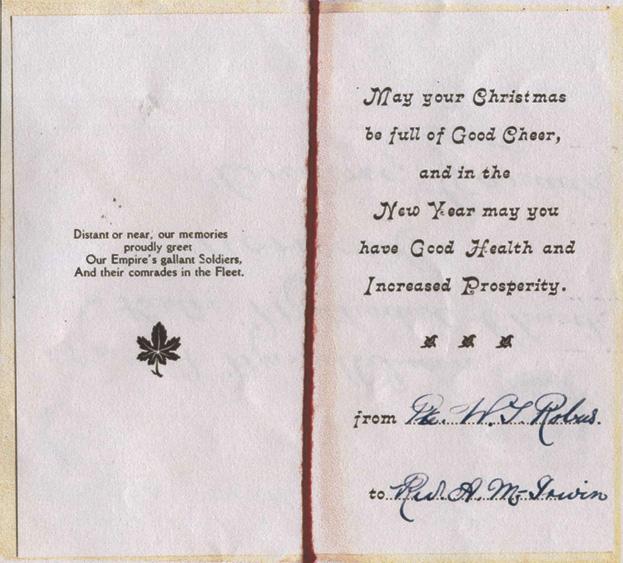 Distant or near, our memories
proudly greet
Our Empire's gallant Soldiers,
And their comrades in the Fleet.
May your Christmas
be full of Good Cheer,
and in the
New Year may you
have Good Health and
Increased Prosperity.
from Pte. W. T. Robus.
to Rev. A. Mc Irwin